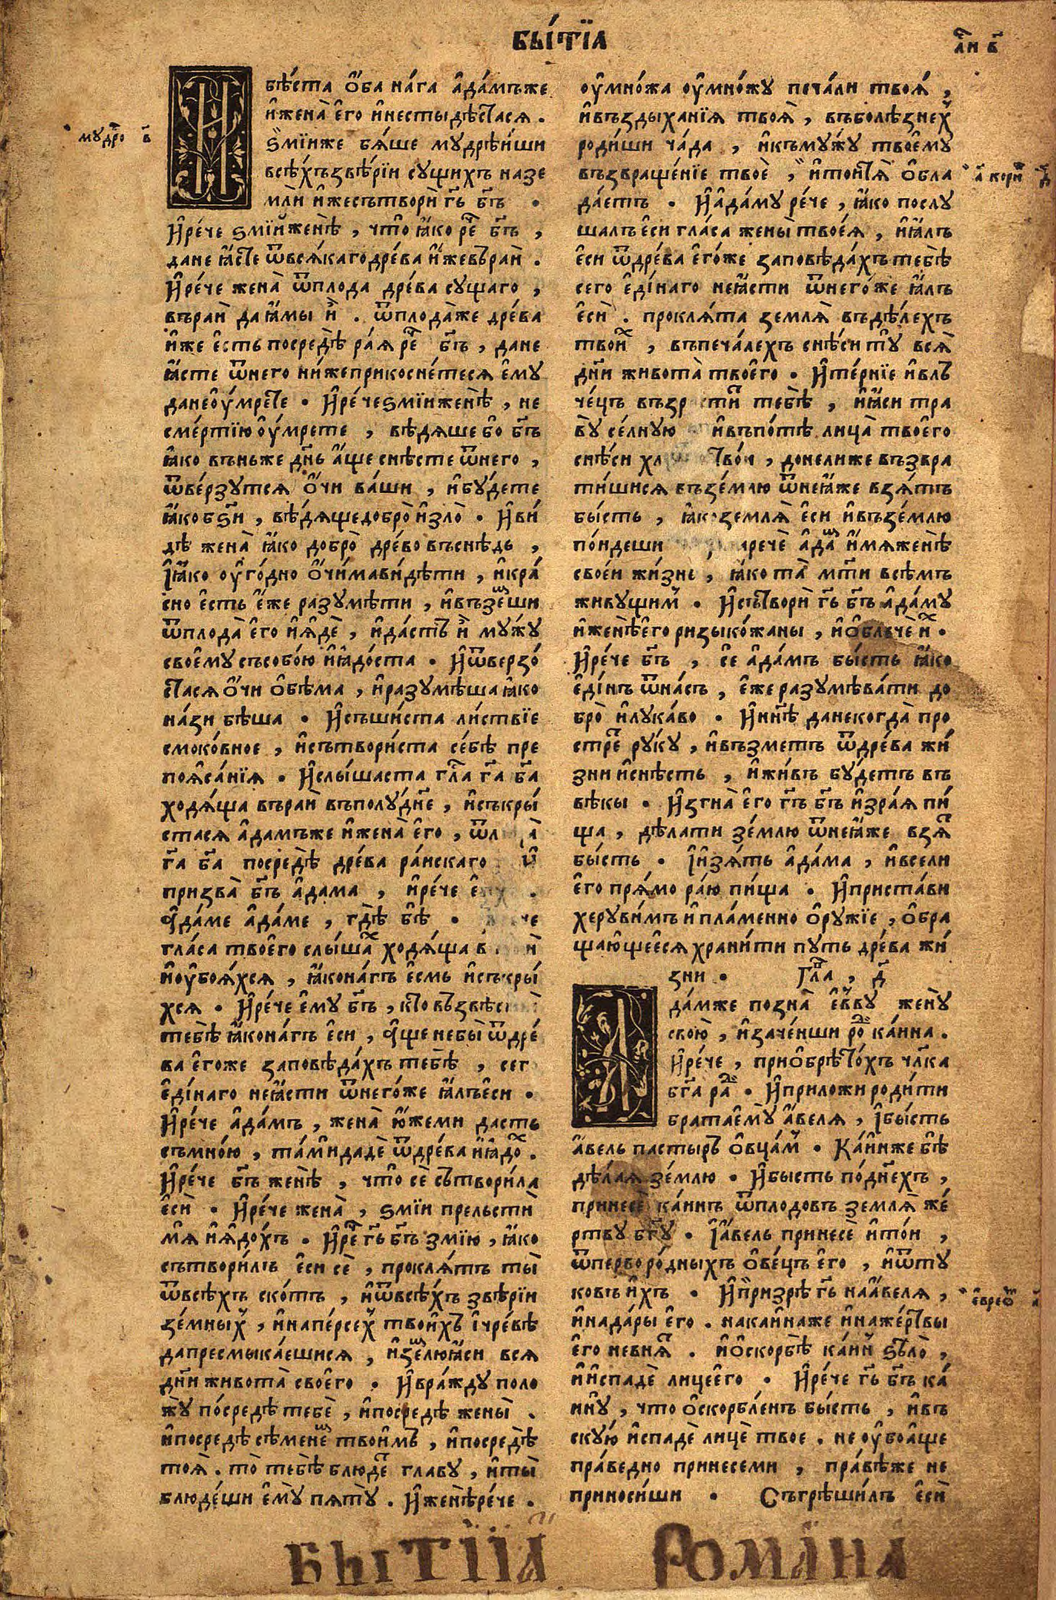 БЫ́ТЇА
л҃и в҃
мудро в҃
И бѣ́ста ѻ҆́ба на́га а҆да́мъже
и҆жена̀ є҆го̀ и҆нестыдѣ́стася .
Ѕмі́иже бя́ше мудрѣ́иши
всѣ́хъзвѣ́рїи су́щихъ назе
млѝ и҆́жесътворѝ гь҃ бъ҃ .
И҆рече ѕмі́йженѣ̀ , что̀ ꙗ҆́ко ре бъ҃ ,
дане ꙗ҆́сте ѿвся́кагодре́ва и҆́жевъраѝ .
И҆рече жена̀ ѿплода дре́ва су́щаго ,
въраѝ да ꙗ҆́мы и҆ . ѿплода́же дре́ва
и҆́же є҆́сть посредѣ̀ рая̀ ре бъ҃ , дане
ꙗ҆́сте ѿнего нижеприкосне́теся є҆му
данеоу҆́мрете . И҆рече ѕмі́йженѣ̀ , не
сме́ртїю оу҆́мрете , вѣ́дяше бо бъ҃
ꙗ҆́ко въньже дн҃ь а҆́ще снѣсте ѿнего ,
ѿве́рзутся ѻ҆́чи ва́ши , и҆бу́дете
ꙗ҆́ко бѕ҃и , вѣ́дящедобро̀ и҆зло̀ . И҆ви
дѣ жена̀ ꙗ҆́ко добро̀ дре́во въснѣдь ,
ꙇ҆ꙗ҆́ко оу҆го́дно ѻ҆чи́мави́дѣти , и҆кра́
сно є҆́сть є҆́же разумѣ́ти , и҆взе́мши
ѿплода̀ є҆го̀ и҆ꙗ҆дѐ , и҆да́стъ и҆ му́жу
своему съсобо́ю и҆ꙗ҆до́ста . И҆ѿверзо́
стася ѻ҆́чи ѻ҆бѣ́ма , и҆разумѣ́ша ꙗ҆́ко
на́зи бѣ́ша . И҆сши́ста ли́ствїе
смоко́вное , и҆сътвори́ста се́бѣ пре
поя́санїя . И҆слы́шаста гла̀ га҃ ба҃
ходя́ща враѝ въполу́дне , и҆съкры́
стася а҆да́мъже и҆жена̀ є҆го̀ , ѿл а̀
га҃ ба҃ посредѣ̀ дре́ва ра́искаго и҆
призва̀ бъ҃ а҆да́ма , и҆рече є҆
а҆да́ме а҆да́ме , гдѣ̀ бѣ̀ . че
гла́са твоего слы́шах ходя́ща в и҆
и҆оубоя́хся , ꙗ҆́конагъ є҆́смь и҆съкры́
хся . И҆рече є҆му̀ бъ҃ , кто възвѣс
тебѣ̀ ꙗ҆́конагъ є҆сѝ , а҆́ще небы̀ ѿдре́
ва є҆го́же заповѣ́дахътебѣ , сег
є҆ди́наго неꙗ҆́сти ѿнего́же ꙗ҆́лъє҆си .
И҆рече а҆да́мъ , жена̀ ю҆́жеми дасть
съмно́ю , та́мидадѐ ѿдре́ва и҆ꙗ҆до́х .
И҆рече бъ҃ женѣ̀ , что̀ сѐ сътвори́ла
є҆сѝ . И҆рече жена̀ , ѕмі́и прельсти
мя и҆ꙗ҆до́хъ . И҆ре гь҃ бъ҃ змі́ю , ꙗ҆́ко
сътвори́лъ є҆сѝ сѐ , про́клятъ ты̀
ѿвсѣ́хъ ско́тъ , и҆ѿвсѣ́хъ звѣ́рїи
зе́мных , и҆напе́рсех твои́хъ і҆чре́вѣ
дапресмыка́ешися , и҆зе́млюꙗ҆си вся
дн҃и живота̀ своего . И҆вражду поло
жу̀ посредѣ̀ тебѐ , и҆посредѣ̀ жены̀ .
и҆посредѣ̀ сѣ́мене твои́мъ , и҆посредѣ̀
тоя̀ . то̀ тебѣ̀ блюде́т главу , и҆ты̀
блюде́ши є҆му̀ пяту . И҆женѣ̀рече .
оу҆мно́жа оу҆мно́жу печа́ли твоя̀ ,
и҆въздыха́нїя твоя̀ , въболѣ́знех
роди́ши ча́да , и҆къму́жу твоему
възвраще́нїе твоѐ , и҆то́и҆тя ѻ҆бла
да́етъ . И҆а҆да́му ре́че , ꙗ҆́ко послу
шалъє҆сѝ гла́са жены̀ твоея̀ , и҆ꙗ҆́лъ
є҆сѝ ѿдре́ва є҆го́же заповѣ́дахътебѣ
сего є҆ди́наго неꙗ҆́сти ѿнего́же ꙗ҆́лъ
є҆сѝ . про́клята земля̀ въдѣ́лехъ
твои́х , въпеча́лехъ снѣ́си ту̀ вся̀
дн҃и живота̀ твоего . И҆те́рнїе и҆влъ
че́цъ възр сти́т тебѣ̀ , и҆ꙗ҆́си тра
ву̀ се́лную и҆въпо́тѣ лица̀ твоего
снѣ́си хл тво́и , донелиже възвра
ти́шися въземлю ѿнеꙗ҆́же взятъ
бысть , ꙗ҆ко земля̀ є҆сѝ и҆възе́млю
по́идеши , нарече а҆да́м и҆мяженѣ̀
свое́и жи́знь , ꙗ҆́ко та̀ мт҃и всѣмъ
живущим . И҆сътворѝ гь҃ бъ҃ а҆да́му
и҆женѣ̀є҆го ри́зы кожаны , и҆ѻ҆блъчѐ и҆х .
И҆рече бъ҃ , сѐ а҆да́мъ бы́сть ꙗ҆́ко
є҆ди́нъ ѿна́съ , є҆́же разумѣва́ти до
бро̀ и҆лука́во . И҆нн҃ѣ данекогда̀ про
стре руку , и҆въ́зметъ ѿдре́ва жи́
зни и҆снѣсть , и҆живъ бу́детъ въ
вѣ́кы . И҆згна̀ є҆го гь҃ бъ҃ и҆з̾рая пи́
ща , дѣ́лати зе́млю ѿнеꙗ҆́же взят
бы́сть . І҆изя́тъ а҆да́ма , и҆всели
є҆го пря́мо ра́ю пи́ща . И҆приста́ви
херуви́мъ и҆пла́менно ѻ҆ру́жїе , ѻ҆бра
ща́ющееся храни́ти пу́ть дре́ва жи́
зни . Гла , д҃
А҆да́мже позна̀ є҆́вву жену
свою̀ , и҆заче́нши ро ка́ина .
И҆рече , приѻ҆брѣто́хъ чл҃ка
бг҃а ра . И҆приложи роди́ти
братаємꙋ̀ а҆́веля , і҆бы́сть
а҆́вель па́стырь ѻ҆вца́м . Ка́инже бѣ
дѣ́лая зе́млю . И҆бы́сть по́днехъ ,
принесѐ ка́инъ ѿплодовъ земля̀ же́
ртву бг҃у . І҆а҆́вель принесѐ и҆то́и ,
ѿперворо́дныхъ ѻ҆ве́цъ є҆го , и҆ѿту
ковъ и҆́хъ . И҆призрѣ̀ гь҃ наа҆́веля ,
и҆нада́ры є҆го . нака́инаже и҆наже́ртвы
є҆го невня́т . и҆ѻ҆скорбѣ̀ ка́ин ѕѣло̀ ,
и҆испадѐ лицеє҆го . И҆рече гь҃ бъ҃ ка́
ину , что ѻ҆скорбле́нъ бы́сть , и҆въ
скую и҆спадѐ лицѐ твое . не оу҆боа҆́ще
пра́ведно принесеми , пра́вѣже не
прино́сиши . Съгрѣши́лъ є҆сѝ
БЫТІІА РОМАНА